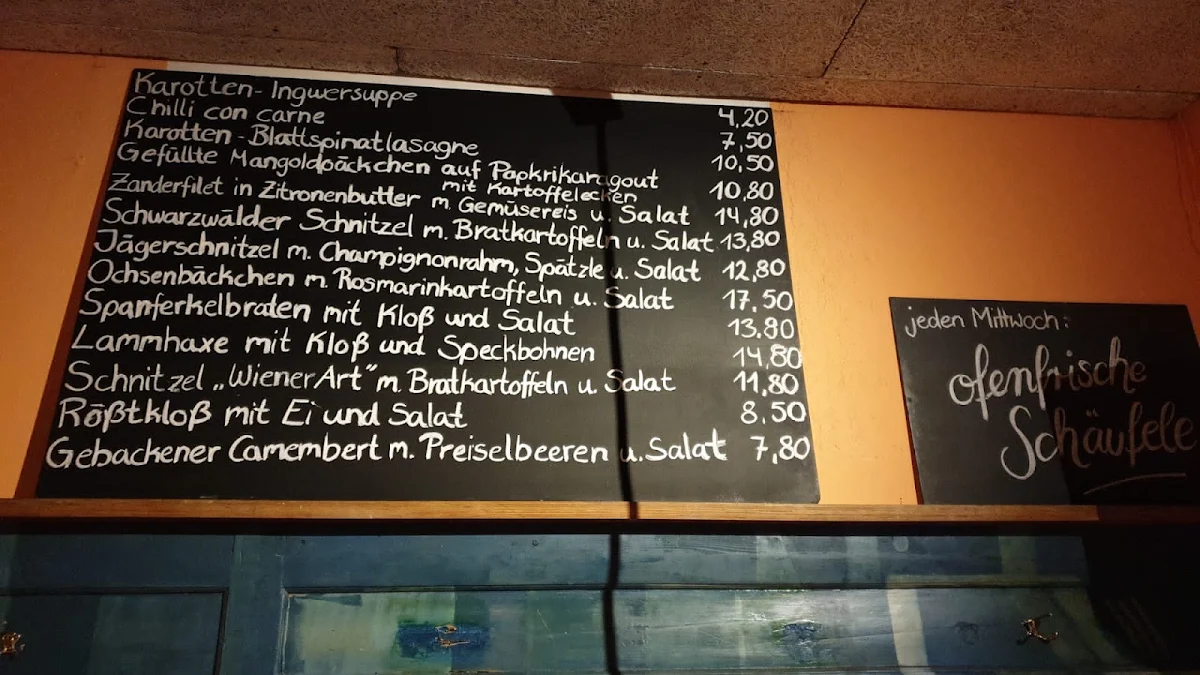 Karotten-Ingwersuppe 4,20
Chilli con carne 7,50
Karotten-Blattspinatlasagne 10,50
Gefüllte Mangoldpäckchen auf Papkrikaragout
mit Kartoffelecken 10,80
Zanderfilet in Zitronenbutter m. Gemüsereis u. Salat 14,80
Schwarzwälder Schnitzel m. Bratkartoffeln u. Salat 13,80
Jägerschnitzel m. Champignonrahm, Spätzle u. Salat 12,80
Ochsenbäckchen m. Rosmarinkartoffeln u. Salat 17,50
Spanferkelbraten mit Kloß und Salat 13.80
Lammhaxe mit Kloß und Speckbohnen 14,80
Schnitzel „Wiener Art" m. Bratkartoffeln u. Salat 11,80
Rößtkloß mit Ei und Salat 8.50
Gebackener Camembert m. Preiselbeeren u. Salat 7,80
jeden Mittwoch:
ofenfrische
Schäufele